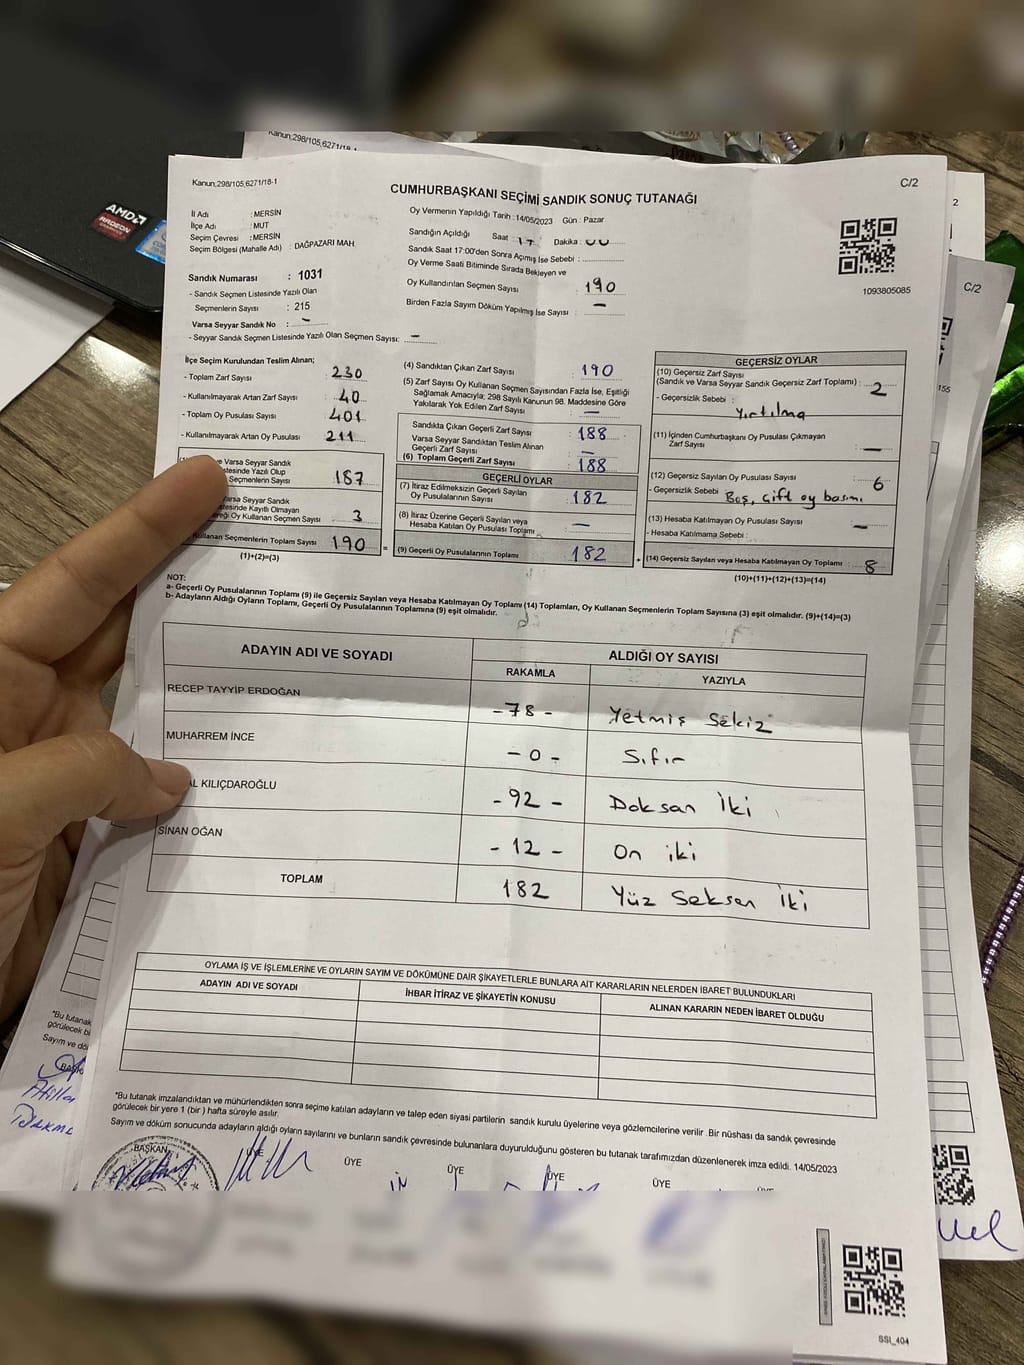 Kanun;298/105,6271/18-1
Kanun;298/105,6271/18-1
C/2
CUMHURBAŞKANI SEÇİMİ SANDIK SONUÇ TUTANAĞI
İl Adı : MERSİN
İlçe Adı : MUT
Seçim Çevresi : MERSİN
Seçim Bölgesi (Mahalle Adı) : DAĞPAZARI MAH.
Sandık Numarası : 1031
- Sandık Seçmen Listesinde Yazılı Olan
Seçmenlerin Sayısı : 215
Varsa Seyyar Sandık No : -
- Seyyar Sandık Seçmen Listesinde Yazılı Olan Seçmen Sayısı: -
Oy Vermenin Yapıldığı Tarih : 14/05/2023 Gün : Pazar
Sandığın Açıldığı Saat : 17 Dakika : 00
Sandık Saat 17:00'den Sonra Açımış İse Sebebi :
Oy Verme Saati Bitiminde Sırada Bekleyen ve
Oy Kullandırılan Seçmen Sayısı : 190
Birden Fazla Sayım Döküm Yapılmış İse Sayısı : -
1093805085
İlçe Seçim Kurulundan Teslim Alınan;
- Toplam Zarf Sayısı : 230
- Kullanılmayarak Artan Zarf Sayısı : 40
- Toplam Oy Pusulası Sayısı : 401
- Kullanılmayarak Artan Oy Pusulası : 211
Varsa Seyyar Sandık
Listesinde Yazılı Olup
Seçmenlerin Sayısı : 187
Varsa Seyyar Sandık
Listesinde Kayıtlı Olmayan
Oy Kullanan Seçmen Sayısı : 3
Kullanan Seçmenlerin Toplam Sayısı 190
(1)+(2)=(3)
(4) Sandıktan Çıkan Zarf Sayısı : 190
(5) Zarf Sayısı Oy Kullanan Seçmen Sayısından Fazla İse, Eşitliği
Sağlamak Amacıyla; 298 Sayılı Kanunun 98. Maddesine Göre
Yakılarak Yok Edilen Zarf Sayısı : -
Sandıkta Çıkan Geçerli Zarf Sayısı : 188
Varsa Seyyar Sandıktan Teslim Alınan
Geçerli Zarf Sayısı : -
(6) Toplam Geçerli Zarf Sayısı : 188
GEÇERLİ OYLAR
(7) İtiraz Edilmeksizin Geçerli Sayılan
Oy Pusulalarının Sayısı : 182
(8) İtiraz Üzerine Geçerli Sayılan veya
Hesaba Katılan Oy Pusulası Toplamı : -
(9) Geçerli Oy Pusulalarının Toplamı : 182
GEÇERSİZ OYLAR
(10) Geçersiz Zarf Sayısı
(Sandık ve Varsa Seyyar Sandık Geçersiz Zarf Toplamı) : 2
- Geçersizlik Sebebi : Yırtılma
(11) İçinden Cumhurbaşkanı Oy Pusulası Çıkmayan
Zarf Sayısı : -
(12) Geçersiz Sayılan Oy Pusulası Sayısı : 6
- Geçersizlik Sebebi : Boş, çift oy basımı
(13) Hesaba Katılmayan Oy Pusulası Sayısı : -
- Hesaba Katılmama Sebebi :
(14) Geçersiz Sayılan veya Hesaba Katılmayan Oy Toplamı : 8
(10)+(11)+(12)+(13)=(14)
NOT:
a- Geçerli Oy Pusulalarının Toplamı (9) ile Geçersiz Sayılan veya Hesaba Katılmayan Oy Toplamı (14) Toplamları, Oy Kullanan Seçmenlerin Toplam Sayısına (3) eşit olmalıdır. (9)+(14)=(3)
b- Adayların Aldığı Oyların Toplamı, Geçerli Oy Pusulalarının Toplamına (9) eşit olmalıdır.
ADAYIN ADI VE SOYADI ALDIĞI OY SAYISI
RAKAMLA YAZIYLA
RECEP TAYYİP ERDOĞAN -78- Yetmiş Sekiz
MUHARREM İNCE -0- Sıfır
AL KILIÇDAROĞLU -92- Doksan İki
SİNAN OĞAN -12- On iki
TOPLAM 182 Yüz Seksen İki
OYLAMA İŞ VE İŞLEMLERİNE VE OYLARIN SAYIM VE DÖKÜMÜNE DAİR ŞİKAYETLERLE BUNLARA AİT KARARLARIN NELERDEN İBARET BULUNDUKLARI
ADAYIN ADI VE SOYADI İHBAR İTİRAZ VE ŞİKAYETİN KONUSU ALINAN KARARIN NEDEN İBARET OLDUĞU
*Bu tutanak imzalandıktan ve mühürlendikten sonra seçime katılan adayların ve talep eden siyasi partilerin sandık kurulu üyelerine veya gözlemcilerine verilir .Bir nüshası da sandık çevresinde
görülecek bir yere 1 (bir ) hafta süreyle asılır.
Sayım ve döküm sonucunda adayların aldığı oyların sayılarını ve bunların sandık çevresinde bulunanlara duyurulduğunu gösteren bu tutanak tarafımızdan düzenlenerek imza edildi. 14/05/2023
BAŞKAN ÜYE ÜYE ÜYE ÜYE ÜYE
*Bu tutanak
görülecek bi
Sayım ve dö
C/2
2
155
AMD
RADEON
SSI_404